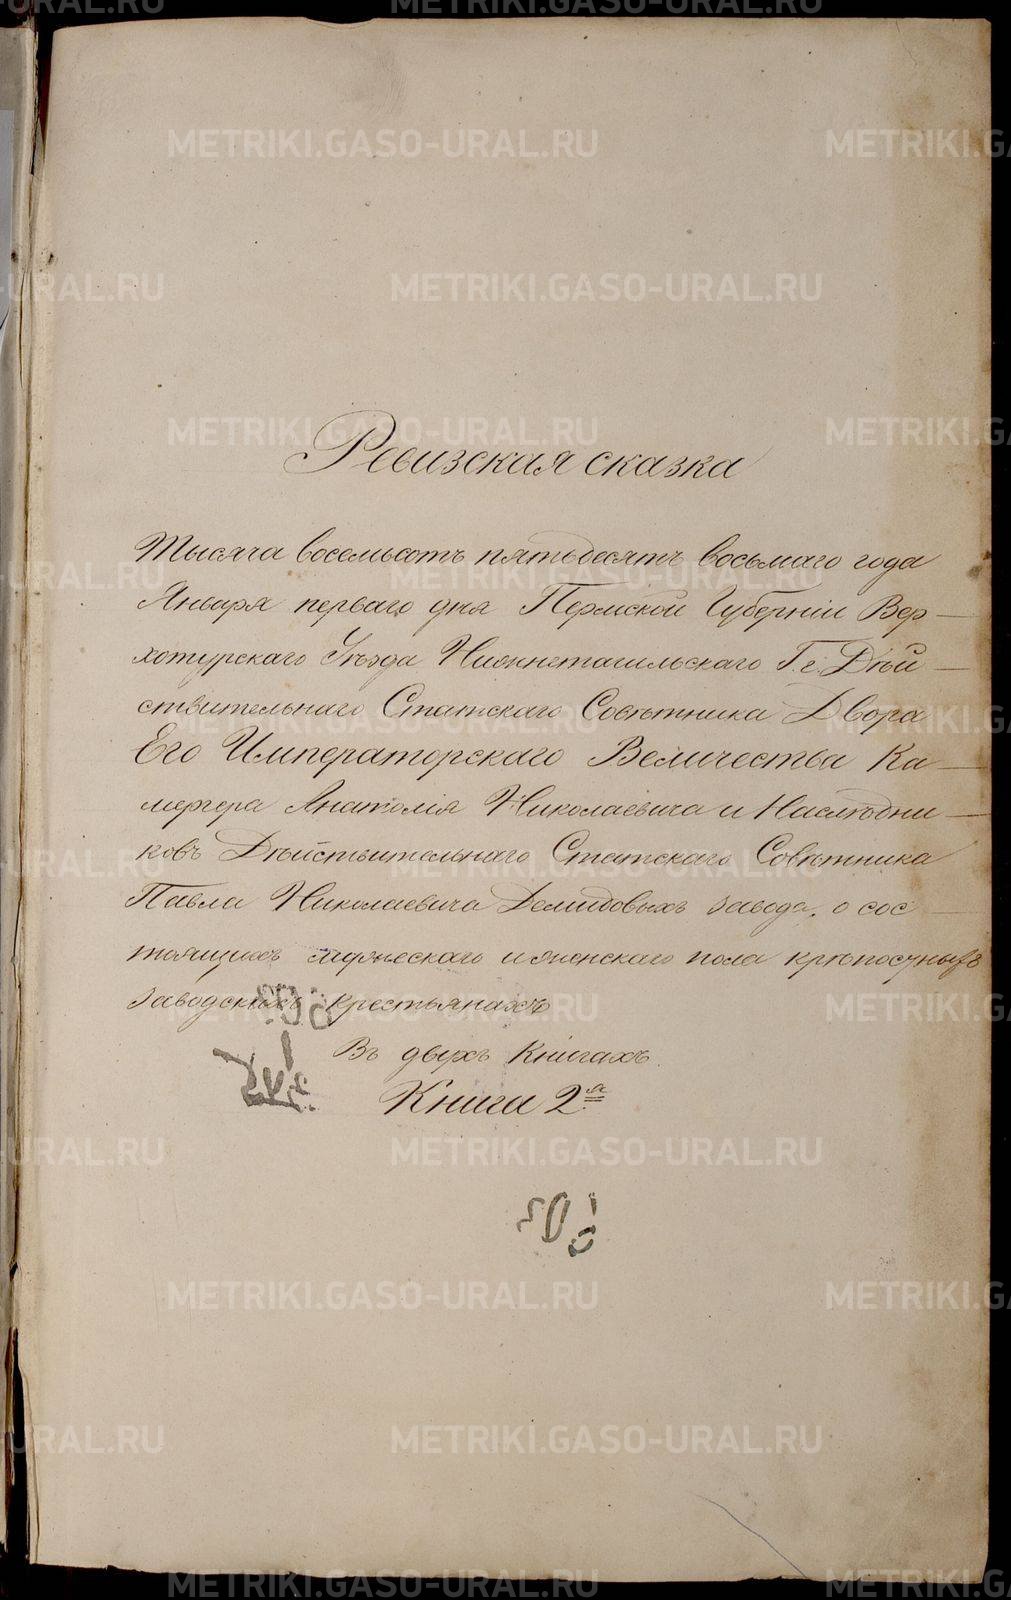 Ревизская сказка
Тысяча восемьсотъ пятьдесятъ восьмаго года
Января перваго дня Пермской Губерніи Вер-
хотурскаго Уѣзда Нижнетагильскаго Г.г. Дѣй-
ствительнаго Статскаго Совѣтника Двора
Его Императорскаго Величества Ка-
мергера Анатолія Николаевича и Наслѣдни-
ковъ Дѣйствительнаго Статскаго Совѣтника
Павла Николаевича Демидовыхъ завода, о сос-
тоящихъ мужескаго и женскаго пола крѣпостныхъ
заводскихъ крестьянахъ
Въ двухъ Книгахъ.
Книга 2я
METRIKI.GASO-URAL.RU